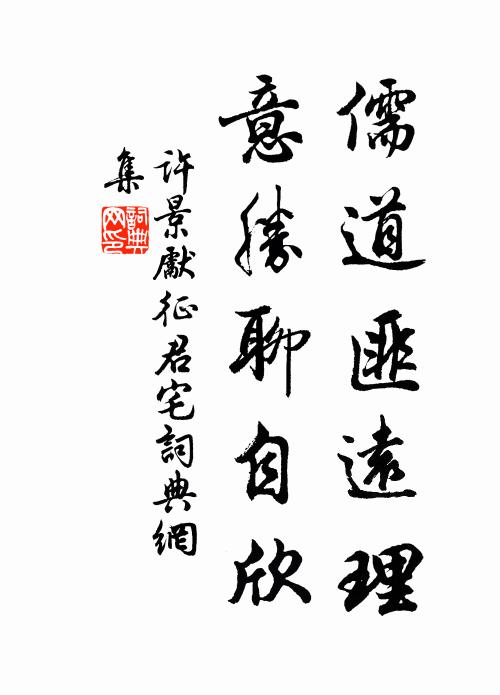 儒道匪遠理
意勝聊自欣
許景獻征君宅詞典網
集
詞典網印